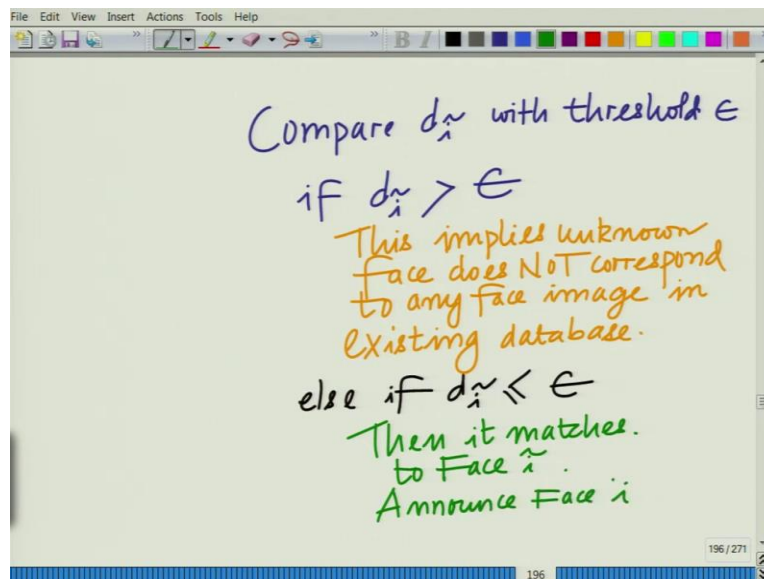 File Edit View Insert Actions Tools Help
Compare d_ĩ with threshold ∈
if d_ĩ > ∈
This implies unknown
face does NOT correspond
to any face image in
existing database.
else if d_ĩ ≤ ∈
Then it matches.
to Face ĩ.
Announce Face i
196 / 271
196